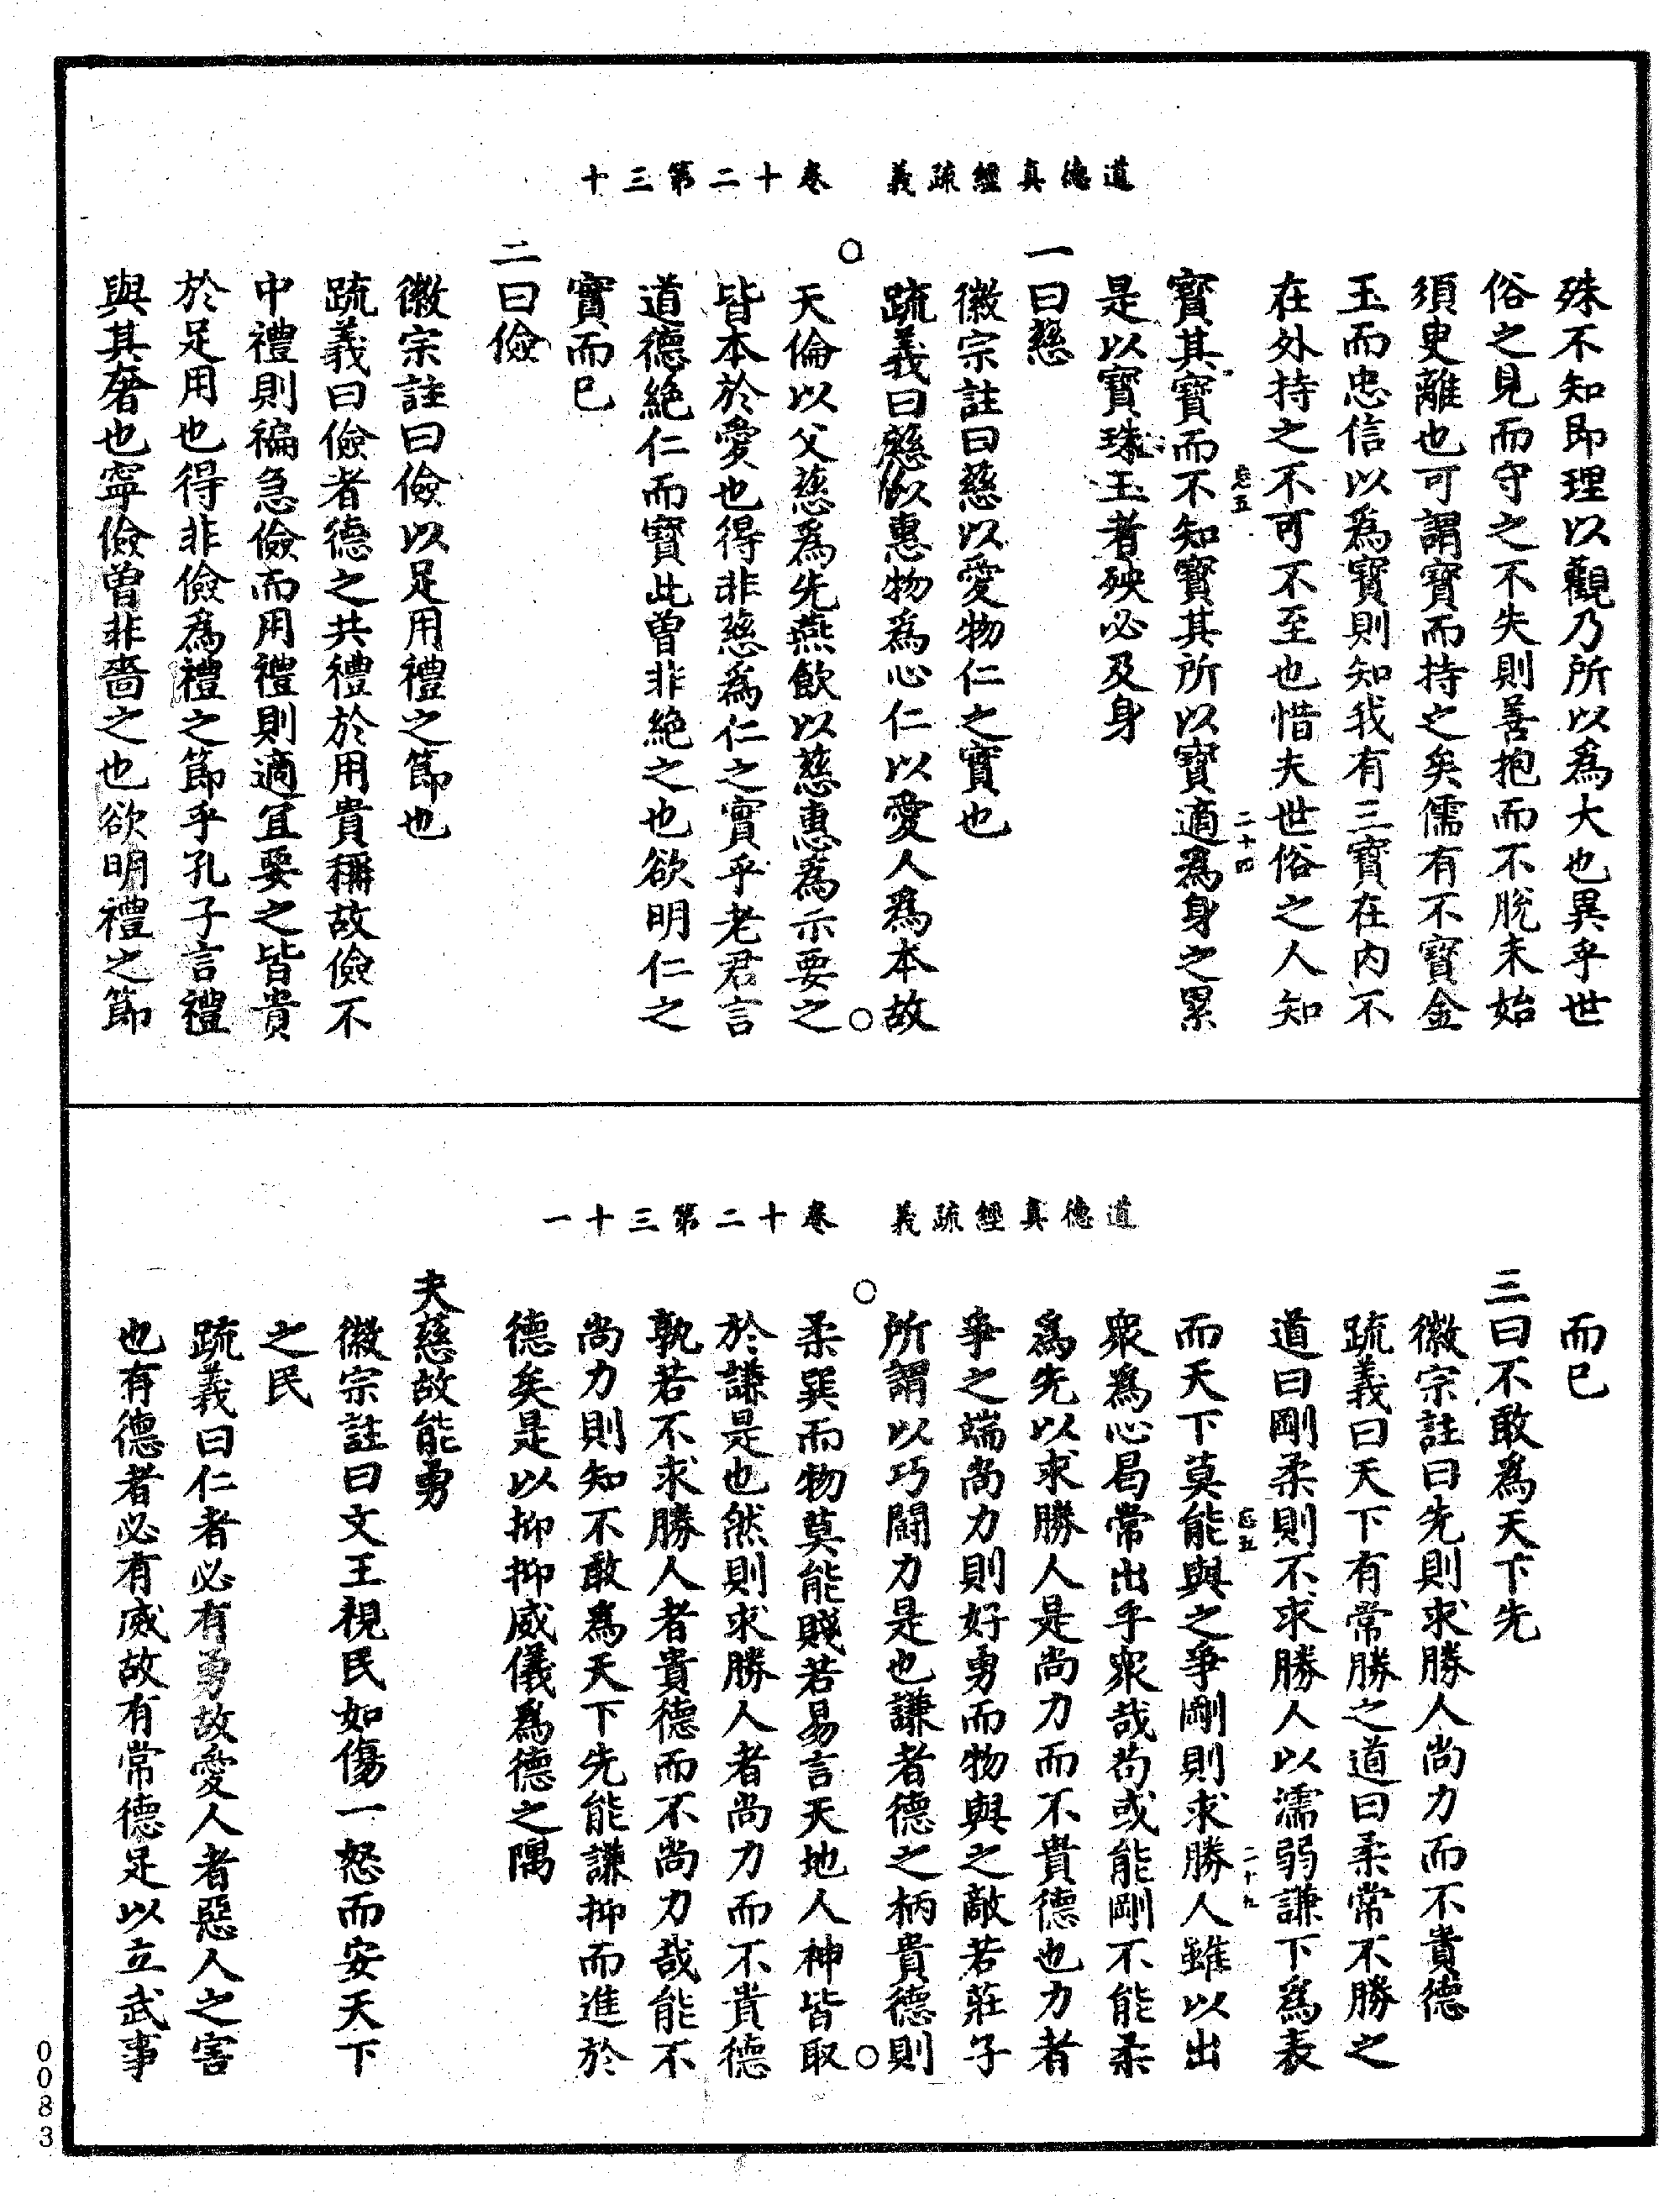 道德真經疏義　卷十二第三十
殊不知即理以觀乃所以爲大也異乎世
俗之見而守之不失則善抱而不脫未始
須臾離也可謂寶而持之矣儒有不寶金
玉而忠信以爲寶則知我有三寶在內不
在外持之不可不至也惜夫世俗之人知
二十四
寶其寶而不知寶其所以寶適爲身之累
是以寶珠玉者殃必及身
一曰慈
徽宗註曰慈以愛物仁之實也
疏義曰慈以惠物爲心仁以愛人爲本故
天倫以父慈爲先燕飲以慈惠爲示要之
皆本於愛也得非慈爲仁之實乎老君言
道德絕仁而寶此曾非絕之也欲明仁之
實而已
二曰儉
徽宗註曰儉以足用禮之節也
疏義曰儉者德之共禮於用貴稱故儉不
中禮則褊急儉而用禮則適宜要之皆貴
於足用也得非儉爲禮之節乎孔子言禮
與其奢也寧儉曾非嗇之也欲明禮之節
道德真經疏義　卷十二第三十一
而已
三曰不敢爲天下先
徽宗註曰先則求勝人尚力而不貴德
疏義曰天下有常勝之道曰柔常不勝之
道曰剛柔則不求勝人以濡弱謙下爲表
二十九
而天下莫能與之爭剛則求勝人雖以出
衆爲心曷常出乎衆哉苟或能剛不能柔
爲先以求勝人是尚力而不貴德也力者
爭之端尚力則好勇而物與之敵若莊子
所謂以巧鬪力是也謙者德之柄貴德則
柔巽而物莫能賤若易言天地人神皆取
於謙是也然則求勝人者尚力而不貴德
孰若不求勝人者貴德而不尚力哉能不
尚力則知不敢爲天下先能謙抑而進於
德矣是以抑抑威儀爲德之隅
夫慈故能勇
徽宗註曰文王視民如傷一怒而安天下
之民
疏義曰仁者必有勇故愛人者惡人之害
也有德者必有威故有常德足以立武事
0083